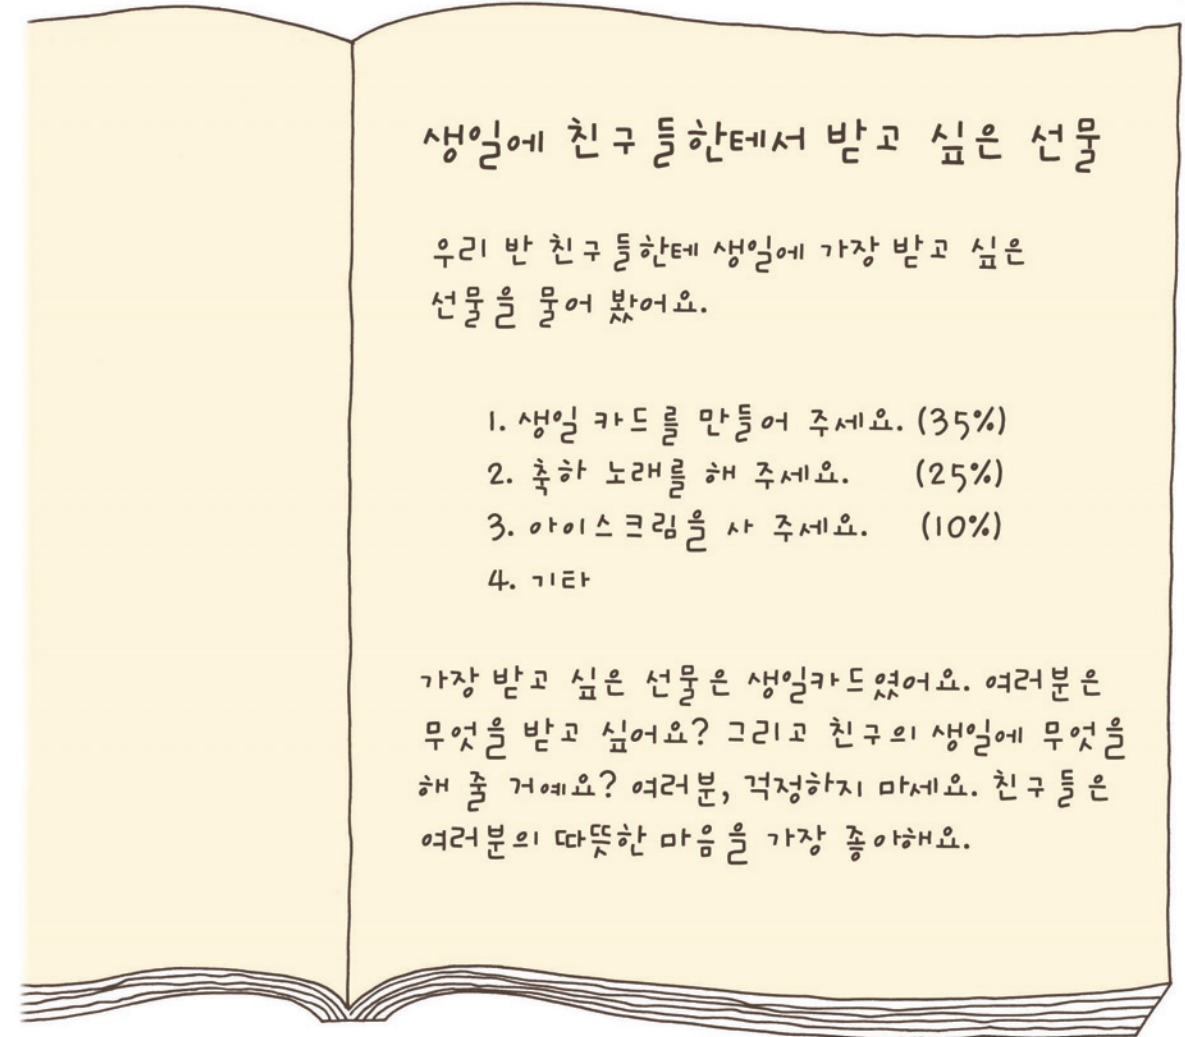 생일에 친구들한테서 받고 싶은 선물
우리 반 친구들한테 생일에 가장 받고 싶은
선물을 물어 봤어요.
1. 생일 카드를 만들어 주세요. (35%)
2. 축하 노래를 해 주세요. (25%)
3. 아이스크림을 사 주세요. (10%)
4. 기타
가장 받고 싶은 선물은 생일카드였어요. 여러분은
무엇을 받고 싶어요? 그리고 친구의 생일에 무엇을
해 줄 거예요? 여러분, 걱정하지 마세요. 친구들은
여러분의 따뜻한 마음을 가장 좋아해요.